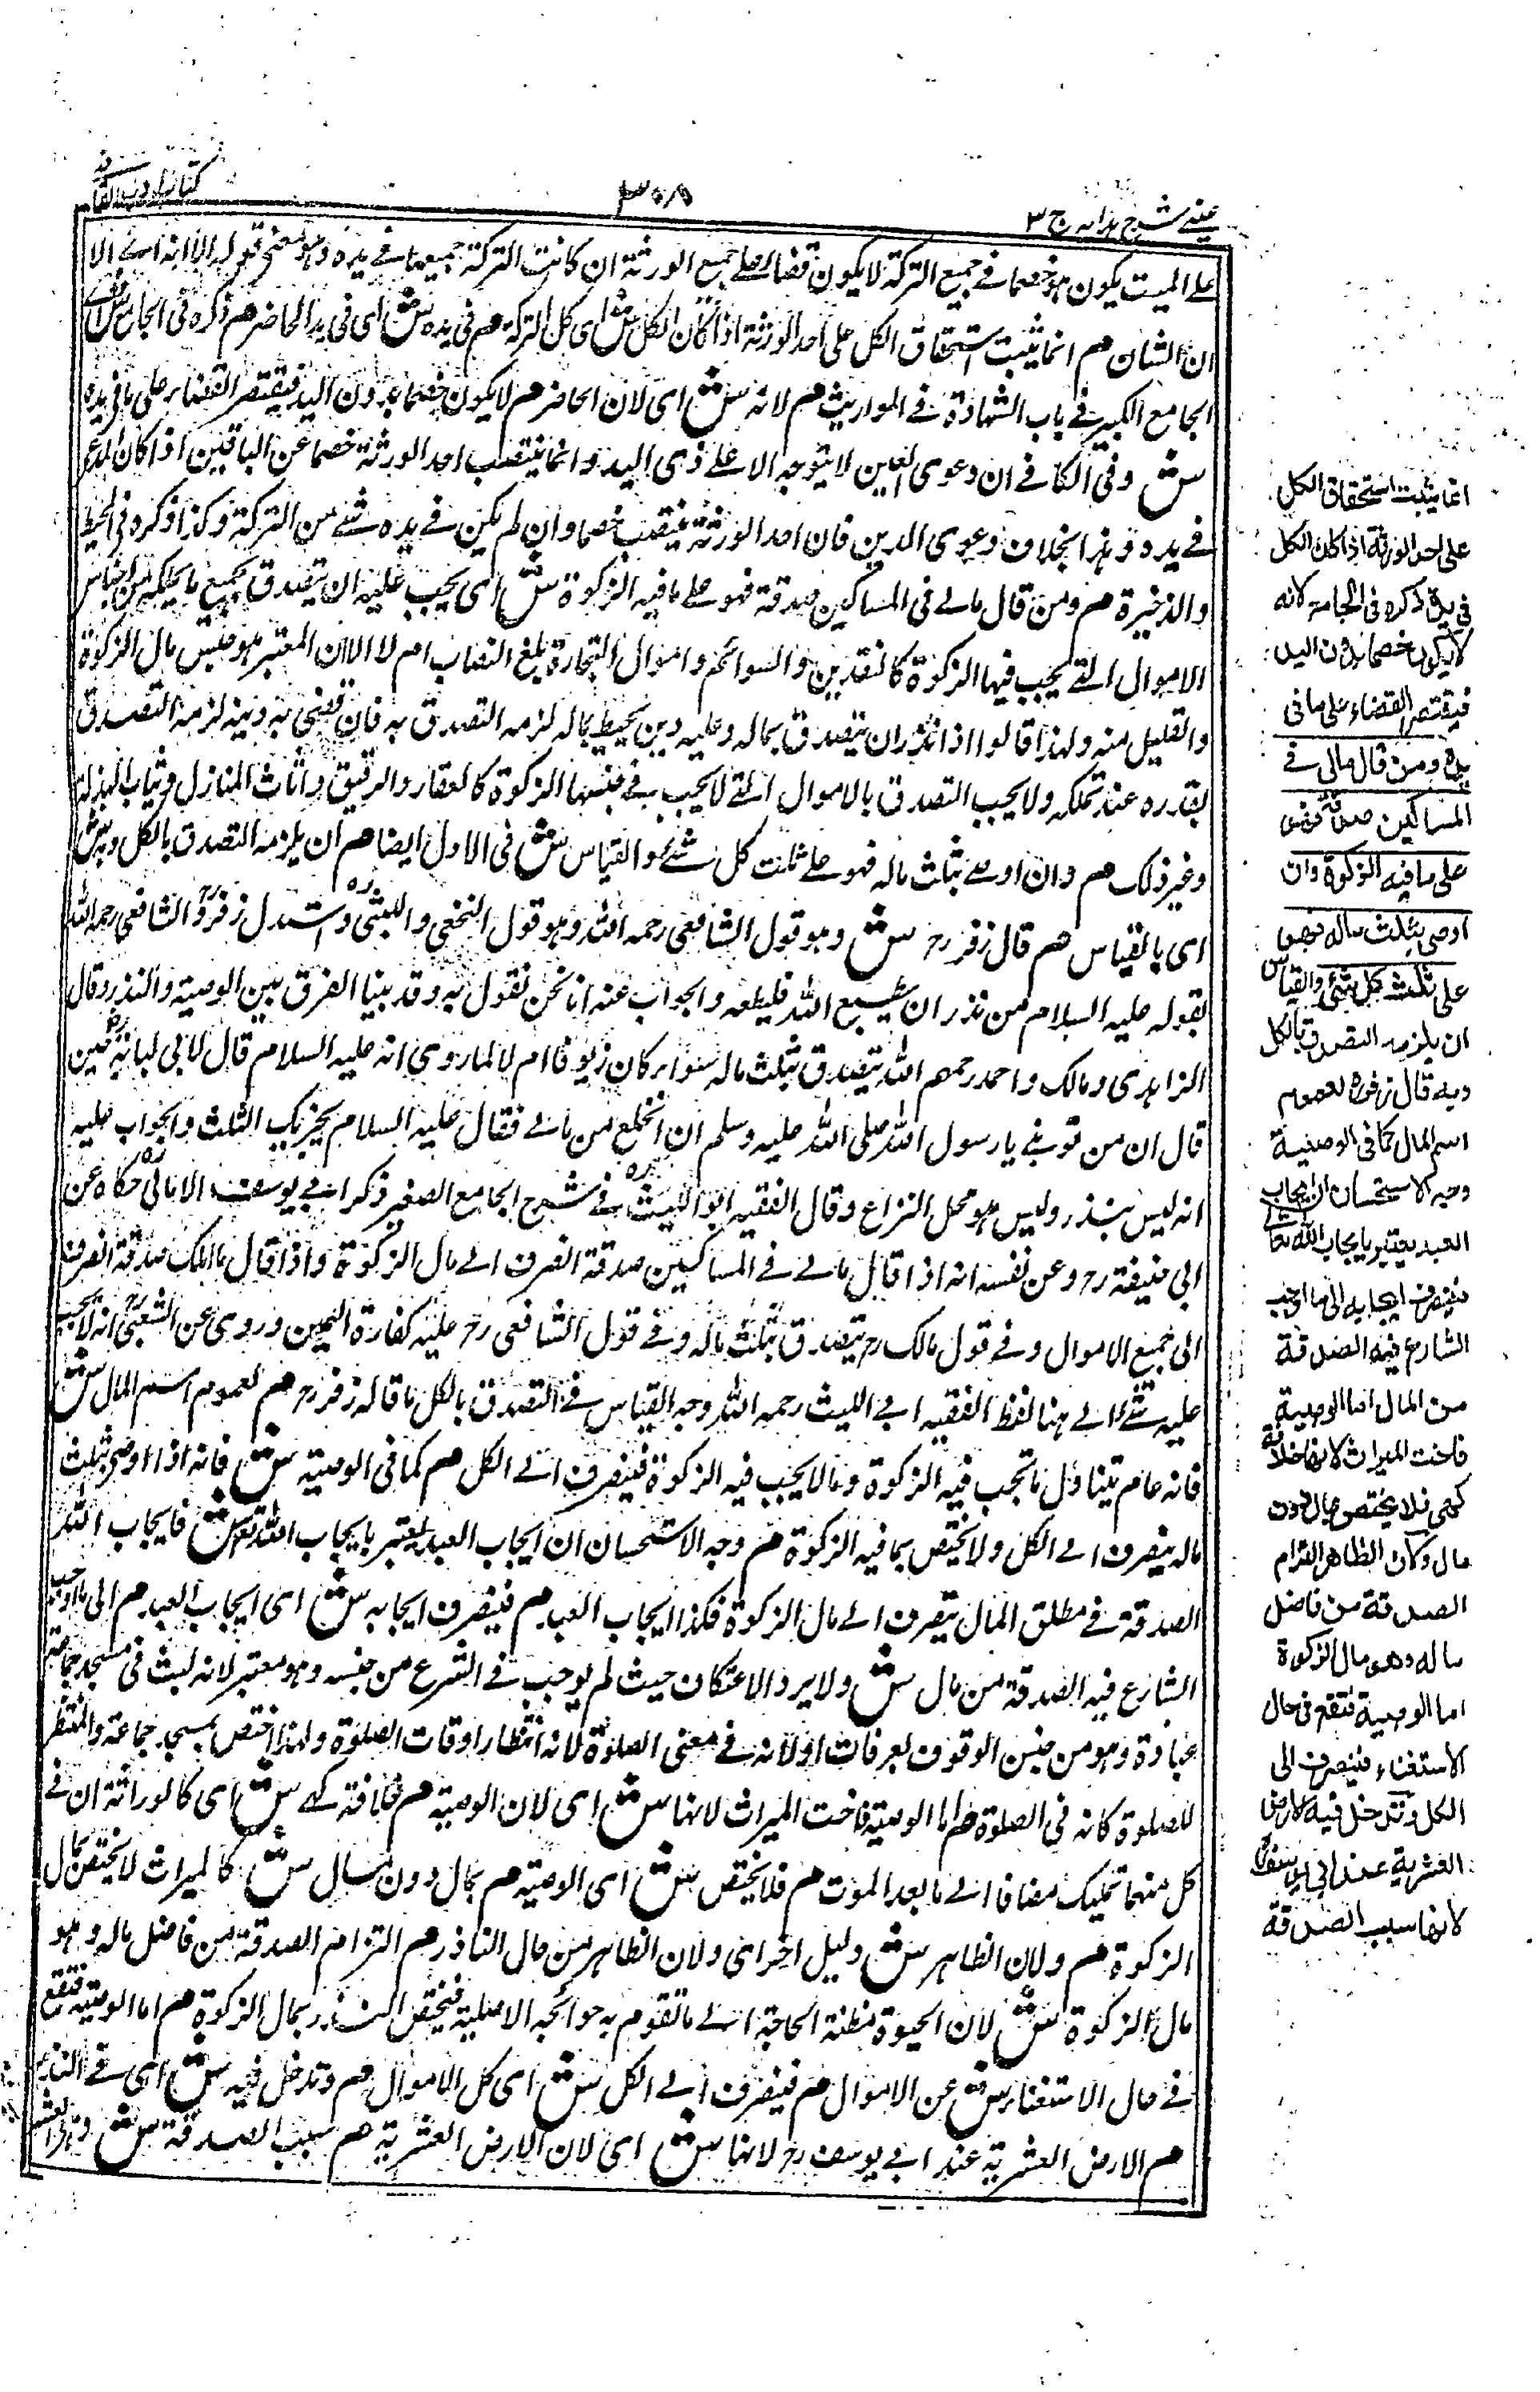 عينے شرح ہدایہ ج ٣
٣٠٨
كتاب ادب القاضے
علے الميت يكون ہو خصما فے جميع التركة لا يكون قضاء علے جميع الورثة ان كانت التركة جميعہا فے يده وہو معنے قولہ الا انہ اے الا
ان الشان هم انما يثبت استحقاق الكل على احد الورثة اذا كان الكل ش اى كل التركة هم فى يده ش اى فى يد الحاضر هم ذكره فى الجامع ش اے
الجامع الكبير فے باب الشهادة فے المواريث هم لانہ ش اى لان الحاضر هم لا يكون خصما بدون اليد فيقتصر القضاء على ما فى يده
ش وفى الكافے ان دعوى العين لا يتوجہ الا علے ذى اليد وانما ينتصب احد الورثة خصما عن الباقين اذا كان المدعى
فے يده وہذا بخلاف دعوى الدين فان احد الورثة ينتصب خصما وان لم يكن فے يده شئے من التركة وكذا ذكره فى المحيط
والذخيرة هم ومن قال مالے فى المساكين صدقة فہو علے ما فيہ الزكوة ش اى يجب عليہ ان يتصدق بجميع ما يملكہ من اجناس
الاموال التے يجب فيها الزكوة كالنقدين والسوائم واموال التجارة بلغ النصاب ام لا لان المعتبر ہو جنس مال الزكوة
والقليل منہ ولہذا قالوا اذا نذر ان يتصدق بمالہ وعليہ دين محيط بمالہ لزمہ التصدق بہ فان قضى بہ دينہ لزمہ التصدق
بقدره عند تملكہ ولا يجب التصدق بالاموال التے لا يجب فے جنسها الزكوة كالعقار والرقيق واثاث المنازل وثياب البذلة
وغير ذلك هم وان اوصے بثلث مالہ فہو علے ثلث كل شئے والقياس ش فى الاول ايضا هم ان يلزمہ التصدق بالكل وبہ ش
اى بالقياس هم قال زفر رح ش وہو قول الشافعى رحمہ اللہ وہو قول النخعى والبتى ره واستدل زفر رح والشافعى رحمہ اللہ
بقولہ عليہ السلام من نذر ان يطيع اللہ فليطعہ والجواب عنہ انا نحن نقول بہ وقد بينا الفرق بين الوصية والنذر وقال
الزاہدى ومالك واحمد رحمهم اللہ يتصدق بثلث مالہ سواء كان زيوفا ام لا لما روى انہ عليہ السلام قال لابى لبابة رض حين
قال ان من توبتے يا رسول اللہ صلى اللہ عليہ وسلم ان انخلع من مالے فقال عليہ السلام يجزيك الثلث والجواب عليہ
انہ ليس بنذر وليس ہو محل النزاع وقال الفقيہ ابو الليث ره فے شرح الجامع الصغير ذكر ابے يوسف الامالى حكاه عن
ابى حنيفة رح وعن نفسہ انہ اذا قال مالے فے المساكين صدقة انصرف الے مال الزكوة واذا قال ما املك صدقة انصرف
الى جميع الاموال وفے قول مالك رح يتصدق بثلث مالہ وفے قول الشافعى رح عليہ كفارة اليمين وروى عن الشعبى رح انہ لا يجب
عليہ شئے الے ہنا لفظ الفقيہ ابے الليث رحمہ اللہ وجہ القياس فے التصدق بالكل ما قالہ زفر رح هم لعموم اسم المال ش
فانہ عام يتناول ما تجب فيہ الزكوة وما لا يجب فيہ الزكوة فينصرف الے الكل هم كما فى الوصية ش فانہ اذا اوصى بثلث
مالہ ينصرف الے الكل ولا يختص بما فيہ الزكوة هم وجہ الاستحسان ان ايجاب العبد يعتبر بايجاب اللہ تعالى ش فايجاب اللہ
الصدقة فے مطلق المال ينصرف الے مال الزكوة فكذا ايجاب العبد هم فينصرف ايجابہ ش اى ايجاب العبد هم الى ما اوجب
الشارع فيہ الصدقة من مال ش ولا يرد الاعتكاف حيث لم يوجب فے الشرع من جنسہ وہو معتبر لانہ لبث فى مسجد جماعة
عبادة وہو من جنس الوقوف بعرفات اولانہ فے معنى الصلوة لانہ انتظار اوقات الصلوة ولہذا اختص بمسجد جماعة والمنتظر
للصلوة كانہ فى الصلوة هم اما الوصية فاخت الميراث لانها ش اى لان الوصية هم خلافة كہے ش اى كالوراثة ان فے
كل منهما تمليك مضافا الے ما بعد الموت هم فلا يختص ش اى الوصية هم بمال دون مال ش كالميراث لا يختص بمال
الزكوة هم ولان الظاہر ش دليل اخر اى ولان الظاہر من حال الناذر هم التزام الصدقة من فاضل مالہ وہو
مال الزكوة ش لان الحيوة مظنة الحاجة الے ما تقوم بہ حوائجہ الاصلية فيختص النذر بمال الزكوة هم اما الوصية فتقع
فے حال الاستغناء ش عن الاموال هم فينصرف الے الكل ش اى كل الاموال هم وتدخل فيہ ش اى فے النذر
هم الارض العشرية عند ابے يوسف رح لانها ش اى لان الارض العشرية هم سبب الصدقة ش
انما يثبت استحقاق الكل
على احد الورثة اذا كان الكل
فى يده ذكره فى الجامع لانه
لا يكون خصما بدون اليد
فيقتصر القضاء على ما فى
يده ومن قال مالى فے
المساكين صدقة فهو
على ما فيه الزكوة وان
اوصى بثلث ماله فهو
على ثلث كل شئ والقياس
ان يلزمه التصدق بالكل
وبه قال زفر ره لعموم
اسم المال كما فى الوصية
وجه الاستحسان ان ايجاب
العبد يعتبر بايجاب الله تعالى
فينصرف ايجابه الى ما اوجب
الشارع فيه الصدقة
من المال اما الوصية
فاخت الميراث لانها خلافة
كهى فلا يختص بمال دون
مال وكان الظاهر التزام
الصدقة من فاضل
ماله وهو مال الزكوة
اما الوصية فتقع فى حال
الاستغناء فينصرف الى
الكل وتدخل فيه الارض
العشرية عند ابى يوسف ره
لانها سبب الصدقة